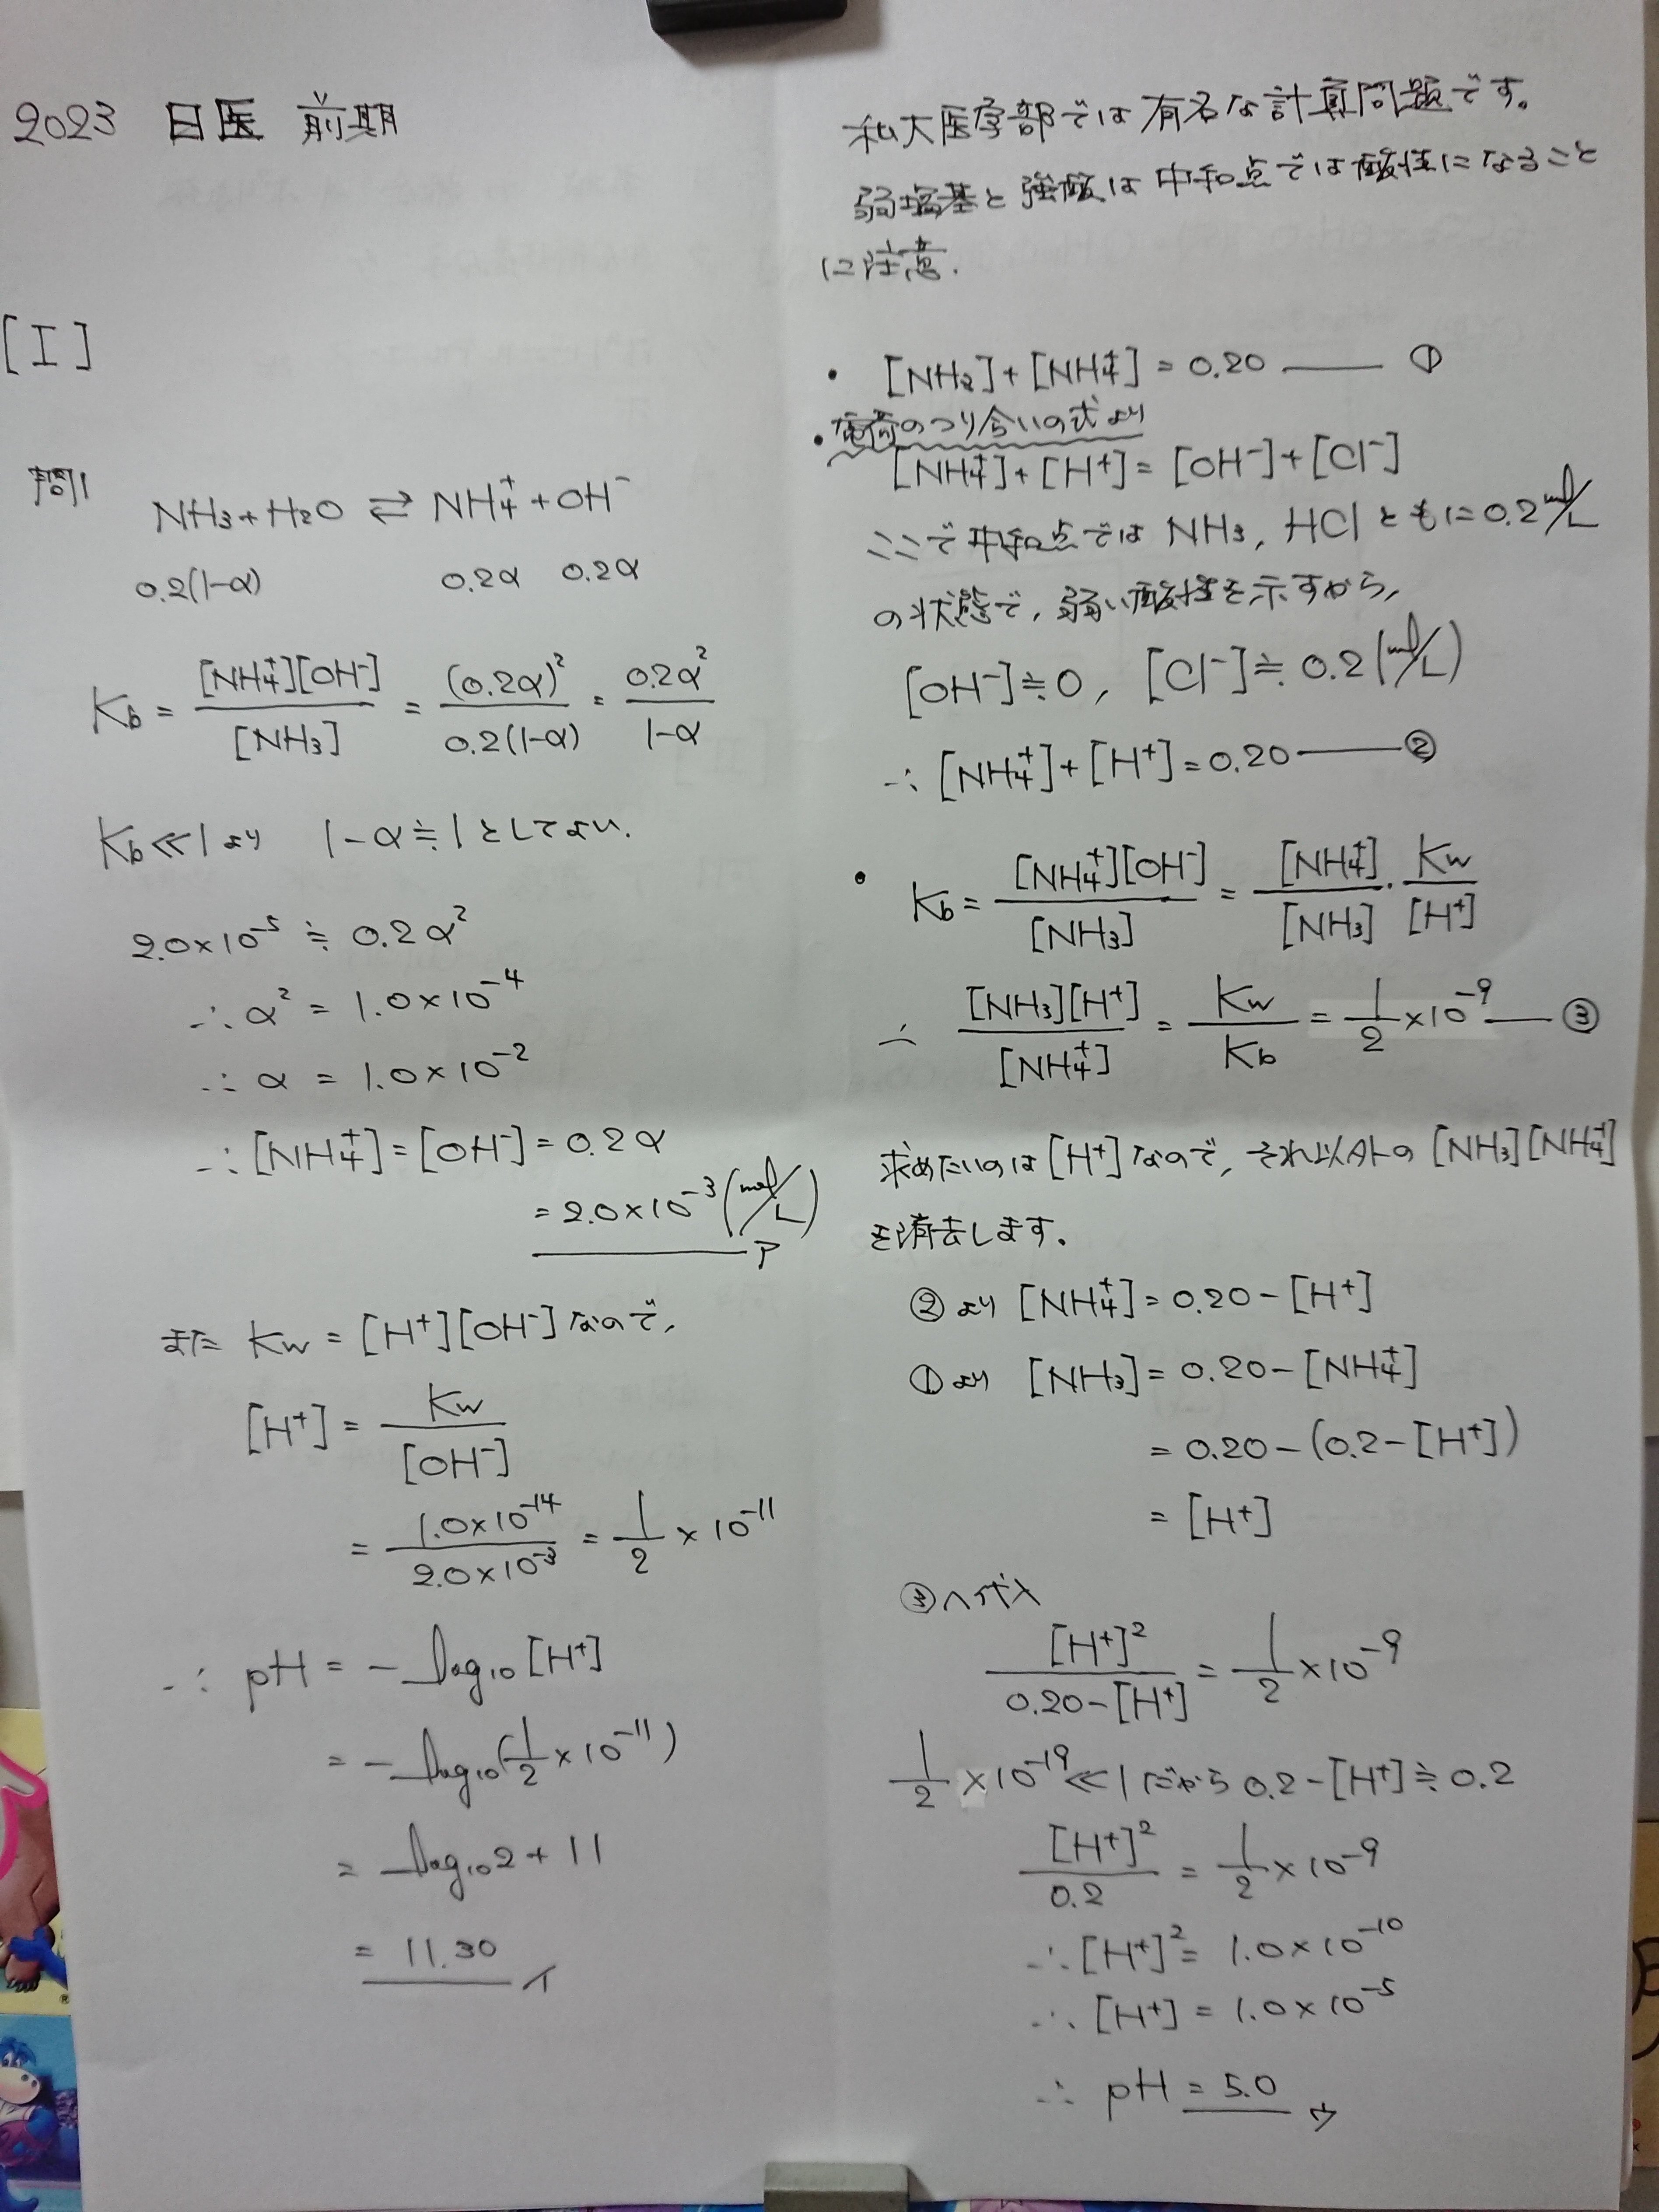 2023 日医 前期
[I]
問1
NH3+H2O ⇄ NH4+ + OH-
0.2(1-α) 0.2α 0.2α
Kb = [NH4+][OH-]/[NH3] = (0.2α)²/0.2(1-α) = 0.2α²/1-α
Kb≪1より 1-α≒1としてよい.
2.0×10⁻⁵ ≒ 0.2α²
∴ α² = 1.0×10⁻⁴
∴ α = 1.0×10⁻²
∴ [NH4+]=[OH-]=0.2α
= 2.0×10⁻³(mol/L) ア
また Kw = [H+][OH-]なので,
[H+] = Kw/[OH-]
= 1.0×10⁻¹⁴/2.0×10⁻³ = 1/2 × 10⁻¹¹
∴ pH = -log₁₀[H+]
= -log₁₀(1/2×10⁻¹¹)
= log₁₀2+11
= 11.30 イ
私大医学部では有名な計算問題です。
弱塩基と強酸は中和点では酸性になること
に注意.
・ [NH3]+[NH4+]=0.20 ― ①
・電荷のつり合いの式より
[NH4+]+[H+]=[OH-]+[Cl-]
ここで中和点ではNH3, HClともに0.2mol/L
の状態で, 弱い酸性を示すから,
[OH-]≒0, [Cl-]≒0.2(mol/L)
∴ [NH4+]+[H+]=0.20 ― ②
・ Kb = [NH4+][OH-]/[NH3] = [NH4+]/[NH3]・Kw/[H+]
∴ [NH3][H+]/[NH4+] = Kw/Kb = 1/2×10⁻⁹ ― ③
求めたいのは[H+]なので, それ以外の[NH3][NH4+]
を消去します。
②より [NH4+]=0.20-[H+]
①より [NH3]=0.20-[NH4+]
= 0.20-(0.2-[H+])
= [H+]
③へ代入
[H+]²/0.20-[H+] = 1/2×10⁻⁹
1/2×10⁻¹⁹≪1だから 0.2-[H+]≒0.2
[H+]²/0.2 = 1/2×10⁻⁹
∴ [H+]²= 1.0×10⁻¹⁰
∴ [H+] = 1.0×10⁻⁵
∴ pH = 5.0 ウ